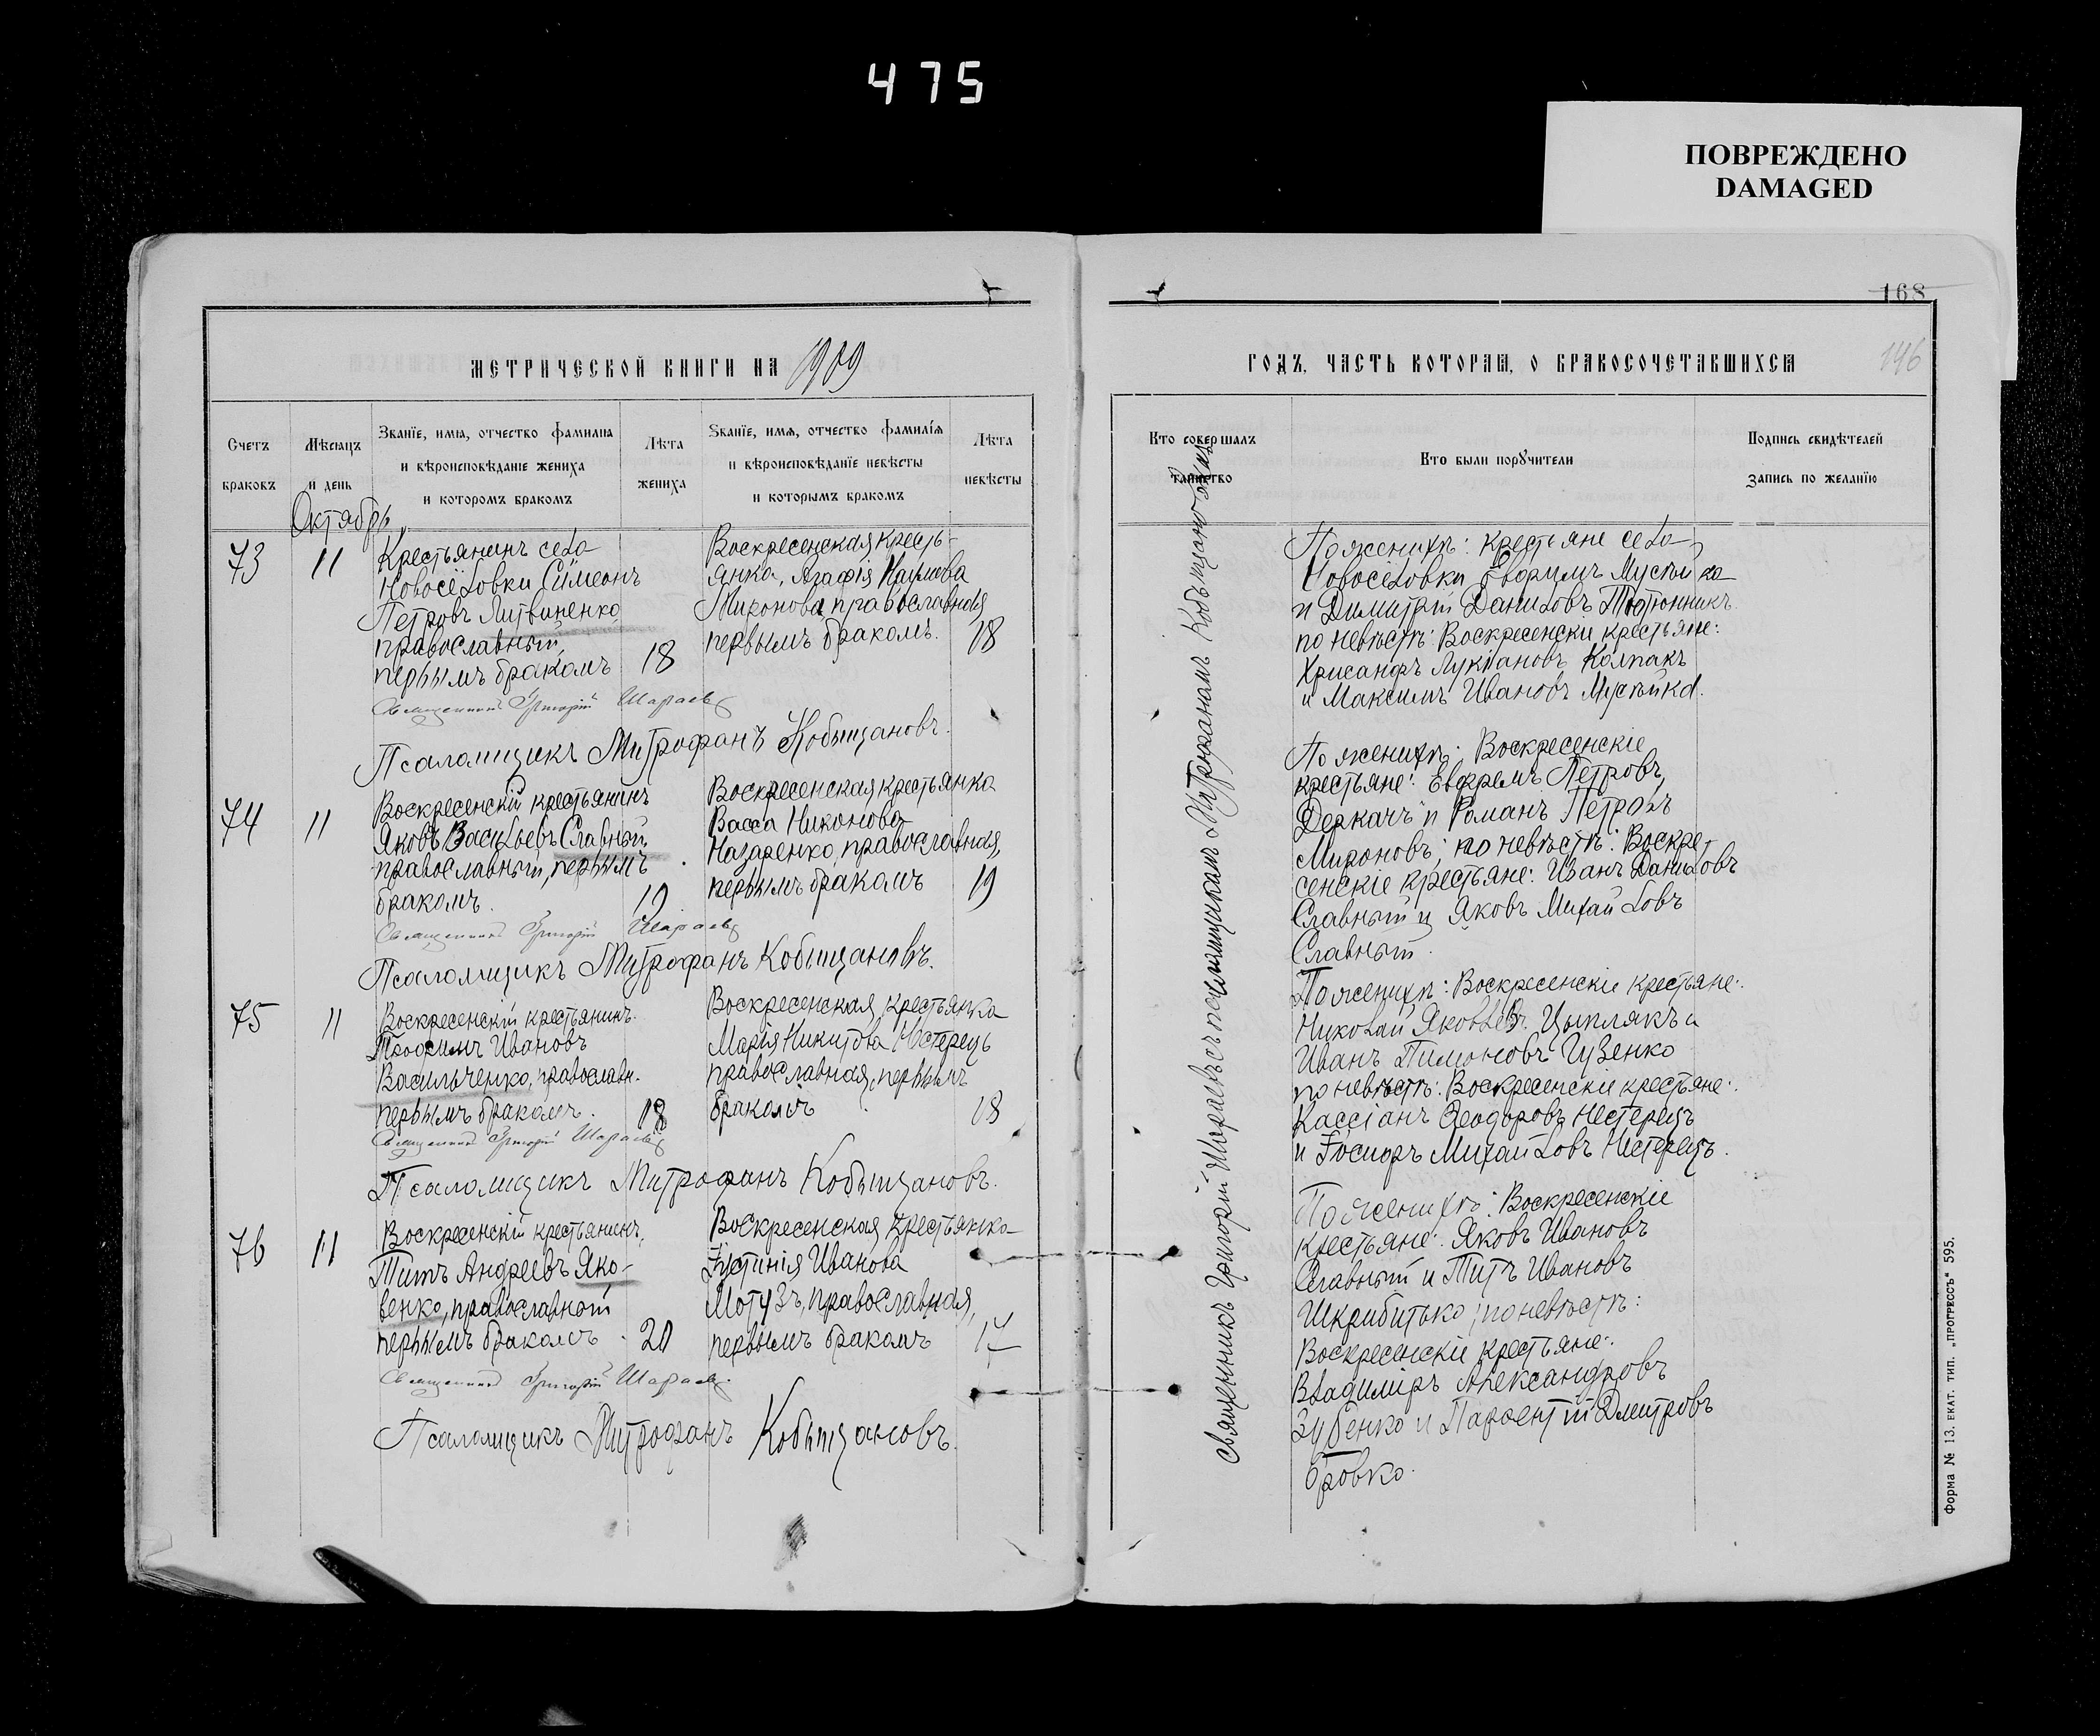 475
ПОВРЕЖДЕНО
DAMAGED
168
146
МЕТРИЧЕСКОЙ КНИГИ НА 1909
ГОДЪ, ЧАСТЬ ВТОРАЯ, О БРАКОСОЧЕТАВШИХСЯ
Счетъ браковъ
Мѣсяцъ и день
Званїе, имя, отчество фамилия и вѣроисповѣданїе жениха и которомъ бракомъ
Лѣта жениха
Званїе, имя, отчество фамилія и вѣроисповѣданїе невѣсты и которымъ бракомъ
Лѣта невѣсты
Кто совершалъ таинство
Кто были порꙋчители
Подпись свидѣтелей запись по желанїю
Октябрь
73
11
Крестьянинъ села
Новосёловки Сѵмеонъ
Петровъ Литвиненко
православный,
первымъ бракомъ
18
Воскресенская кресть-
янка, Агафія Наумова
Миронова, православная,
первымъ бракомъ.
18
Священникъ Григорій Шараевъ
Псаломщикъ Митрофанъ Кобыщановъ.
74
11
Воскресенскій крестьянинъ
Яковъ Васильевъ Славный
православный, первымъ
бракомъ.
19
Воскресенская крестьянка
Васса Никонова
Назаренко, православная,
первымъ бракомъ
19
Священникъ Григорій Шараевъ
Псаломщикъ Митрофанъ Кобыщановъ.
75
11
Воскресенскій крестьянинъ
Трофимъ Ивановъ
Васильченко, православн.
первымъ бракомъ.
18
Воскресенская крестьянка
Марія Никитова Нестерецъ
православная, первымъ
бракомъ
18
Священникъ Григорій Шараевъ
Псаломщикъ Митрофанъ Кобыщановъ.
76
11
Воскресенскій крестьянинъ,
Титъ Андреевъ Яко-
венко, православный
первымъ бракомъ
20
Воскресенская крестьянка
Іустинія Иванова
Мотузъ, православная,
первымъ бракомъ
17
Священникъ Григорій Шараевъ.
Псаломщикъ Митрофанъ Кобыщановъ.
Священникъ Григорій Шараевъ съ псаломщикомъ Митрофаномъ Кобыщановымъ
По женихѣ: крестьяне села
Новосёловки Мусѣйка
и Димитрій Даниловъ Тютюнникъ
по невѣстѣ: Воскресенскіе крестьяне:
Хрисанфъ Лукіановъ Колпакъ
и Максимъ Ивановъ Мусѣйка.
По женихѣ: Воскресенскіе
крестьяне: Евфремъ Петровъ
Деркачъ и Романъ Петровъ
Мироновъ; по невѣстѣ: Воскре-
сенскіе крестьяне: Иванъ Даниловъ
Славный и Яковъ Михайловъ
Славный.
По женихѣ: Воскресенскіе крестьяне:
Николай Яковлевъ Цыплякъ и
Иванъ Пимоновъ Гузенко
по невѣстѣ: Воскресенскіе крестьяне:
Кассіанъ Ѳеодоровъ Нестерецъ
и Іосифъ Михайловъ Нестерецъ.
По женихѣ: Воскресенскіе
крестьяне: Яковъ Ивановъ
Славный и Титъ Ивановъ
Шкрибитько; по невѣстѣ:
Воскресенскіе крестьяне:
Владиміръ Александровъ
Зубенко и Парѳентій Дмитровъ
Бровко.
Форма № 13. ЕКАТ. ТИП. „ПРОГРЕССЪ" 595.